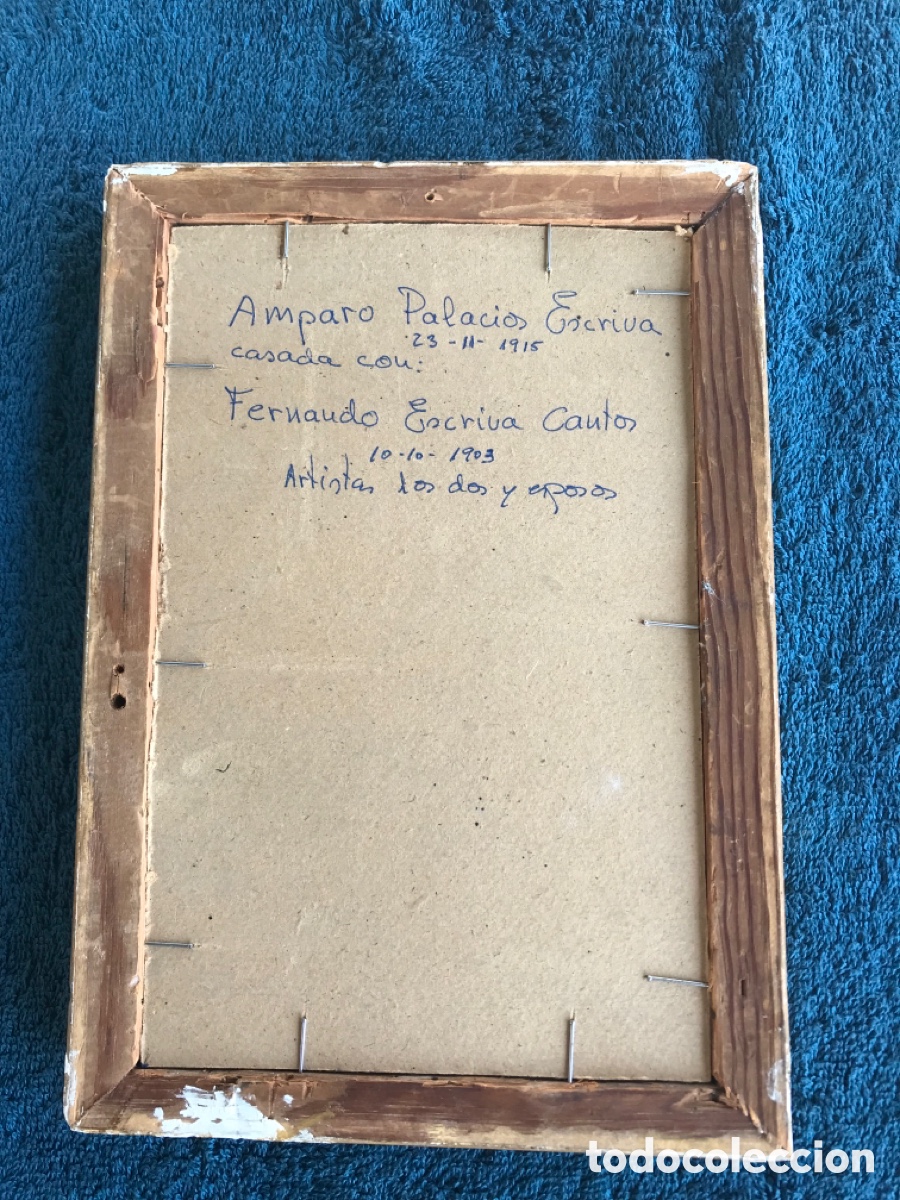 Amparo Palacios Escriva
23-11-1915
casada con:
Fernando Escriva Cantos
10-10-1903
Artistas los dos y esposos
todocoleccion